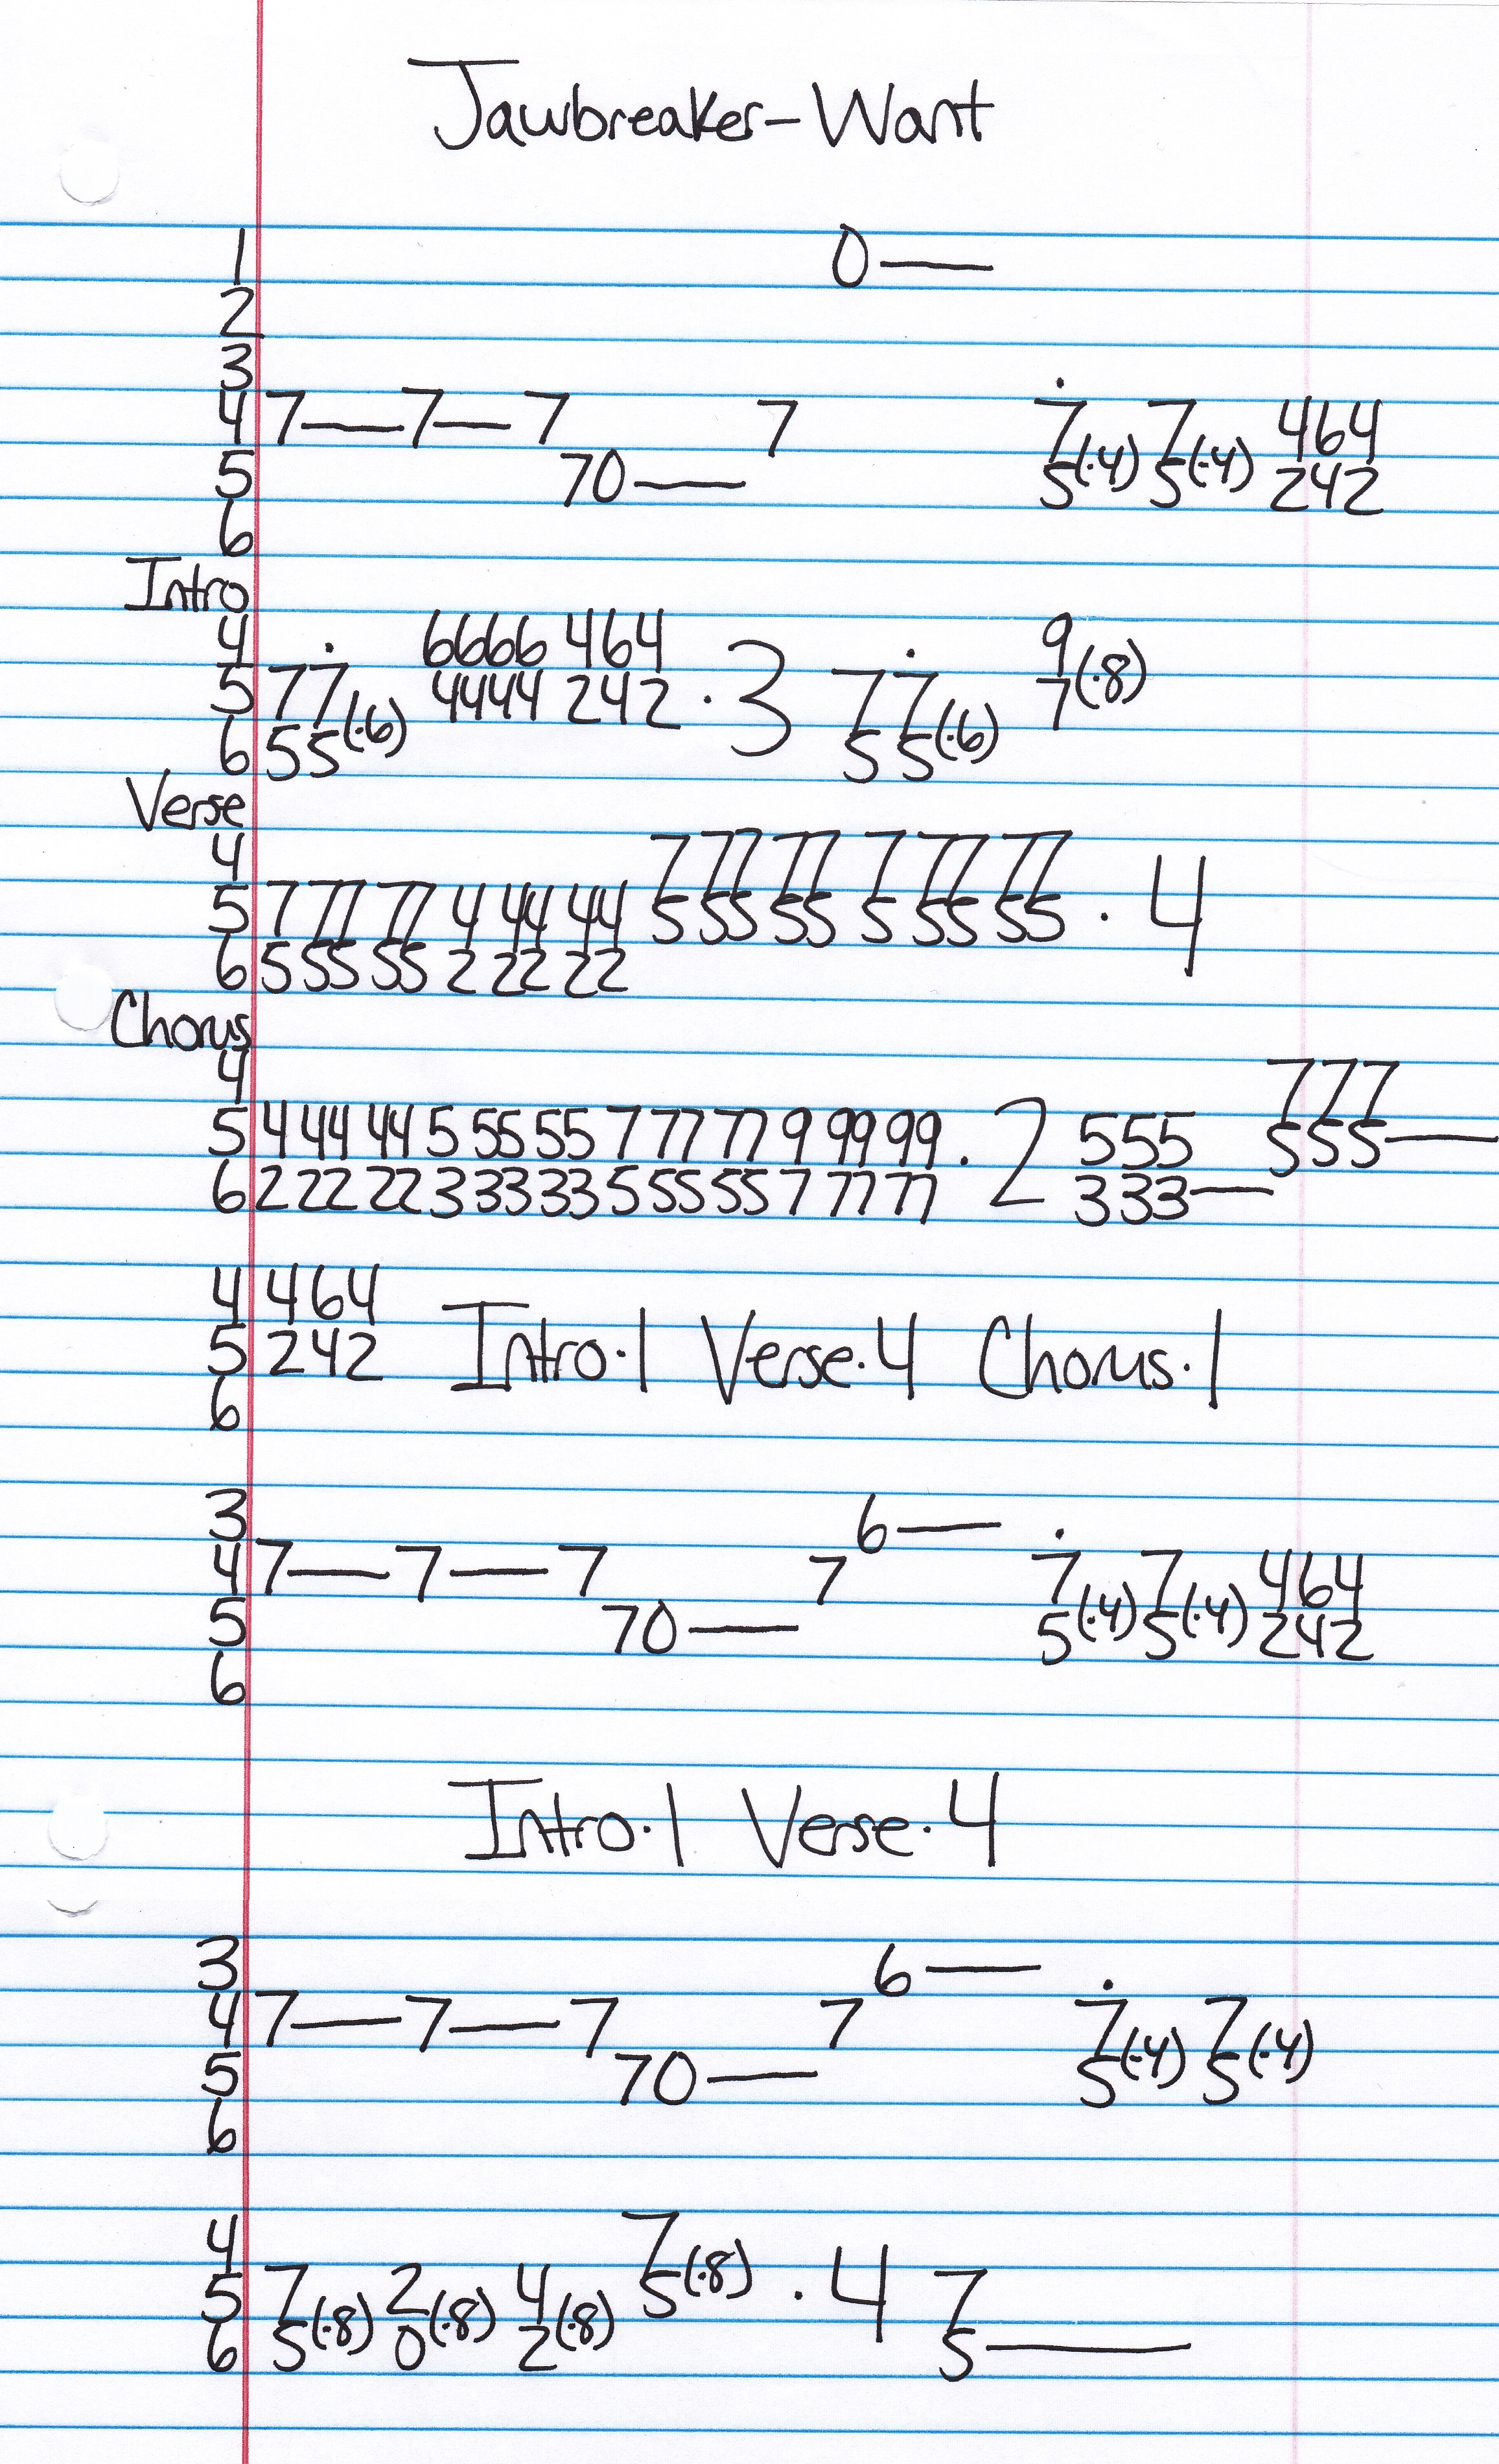 Jawbreaker-Want
1 0—
2
3
4 7—7—7 7 7(·4) 7(·4) 464
5 70— 5 5 242
6
Intro
4 6666 464 9(·8)
5 77(·6) 4444 242 ·3 77(·6) 7
6 55 55
Verse
4 7 77 77 7 77 77
5 7 77 77 4 44 44 5 55 55 5 55 55 ·4
6 5 55 55 2 22 22
Chorus
4 777
5 4 44 44 5 55 55 7 77 77 9 99 99 ·2 555 555—
6 2 22 22 3 33 33 5 55 55 7 77 77 333—
4 464
5 242 Intro·1 Verse·4 Chorus·1
6
3 6—
4 7—7—7 7 7(·4) 7(·4) 464
5 70— 5 5 242
6
Intro·1 Verse·4
3 6—
4 7—7—7 7 7(·4) 7(·4)
5 70— 5 5
6
4 7(·8)
5 7(·8) 2(·8) 4(·8) 5 ·4 7
6 5 0 2 5—